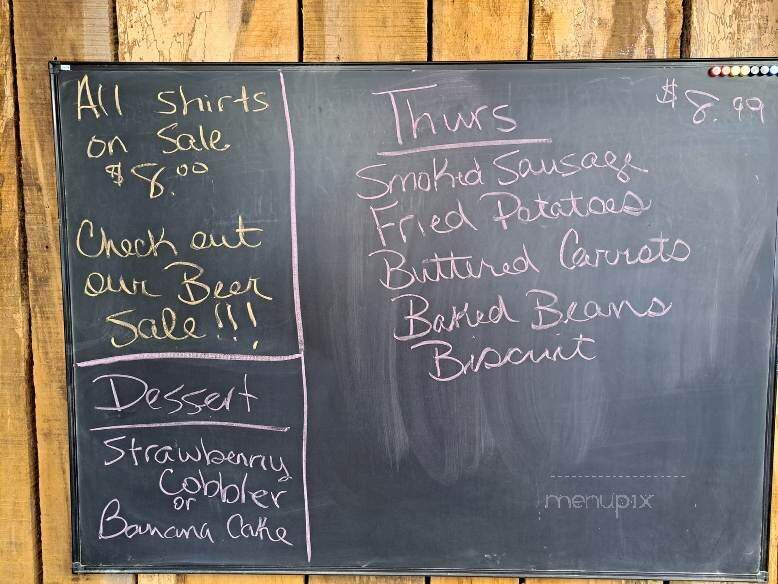 All shirts
on Sale
$8.00
Check out
our Beer
Sale!!!
Dessert
Strawberry
Cobbler
or
Banana Cake
Thurs
$8.99
Smoked Sausage
Fried Potatoes
Buttered Carrots
Baked Beans
Biscuit
menupix